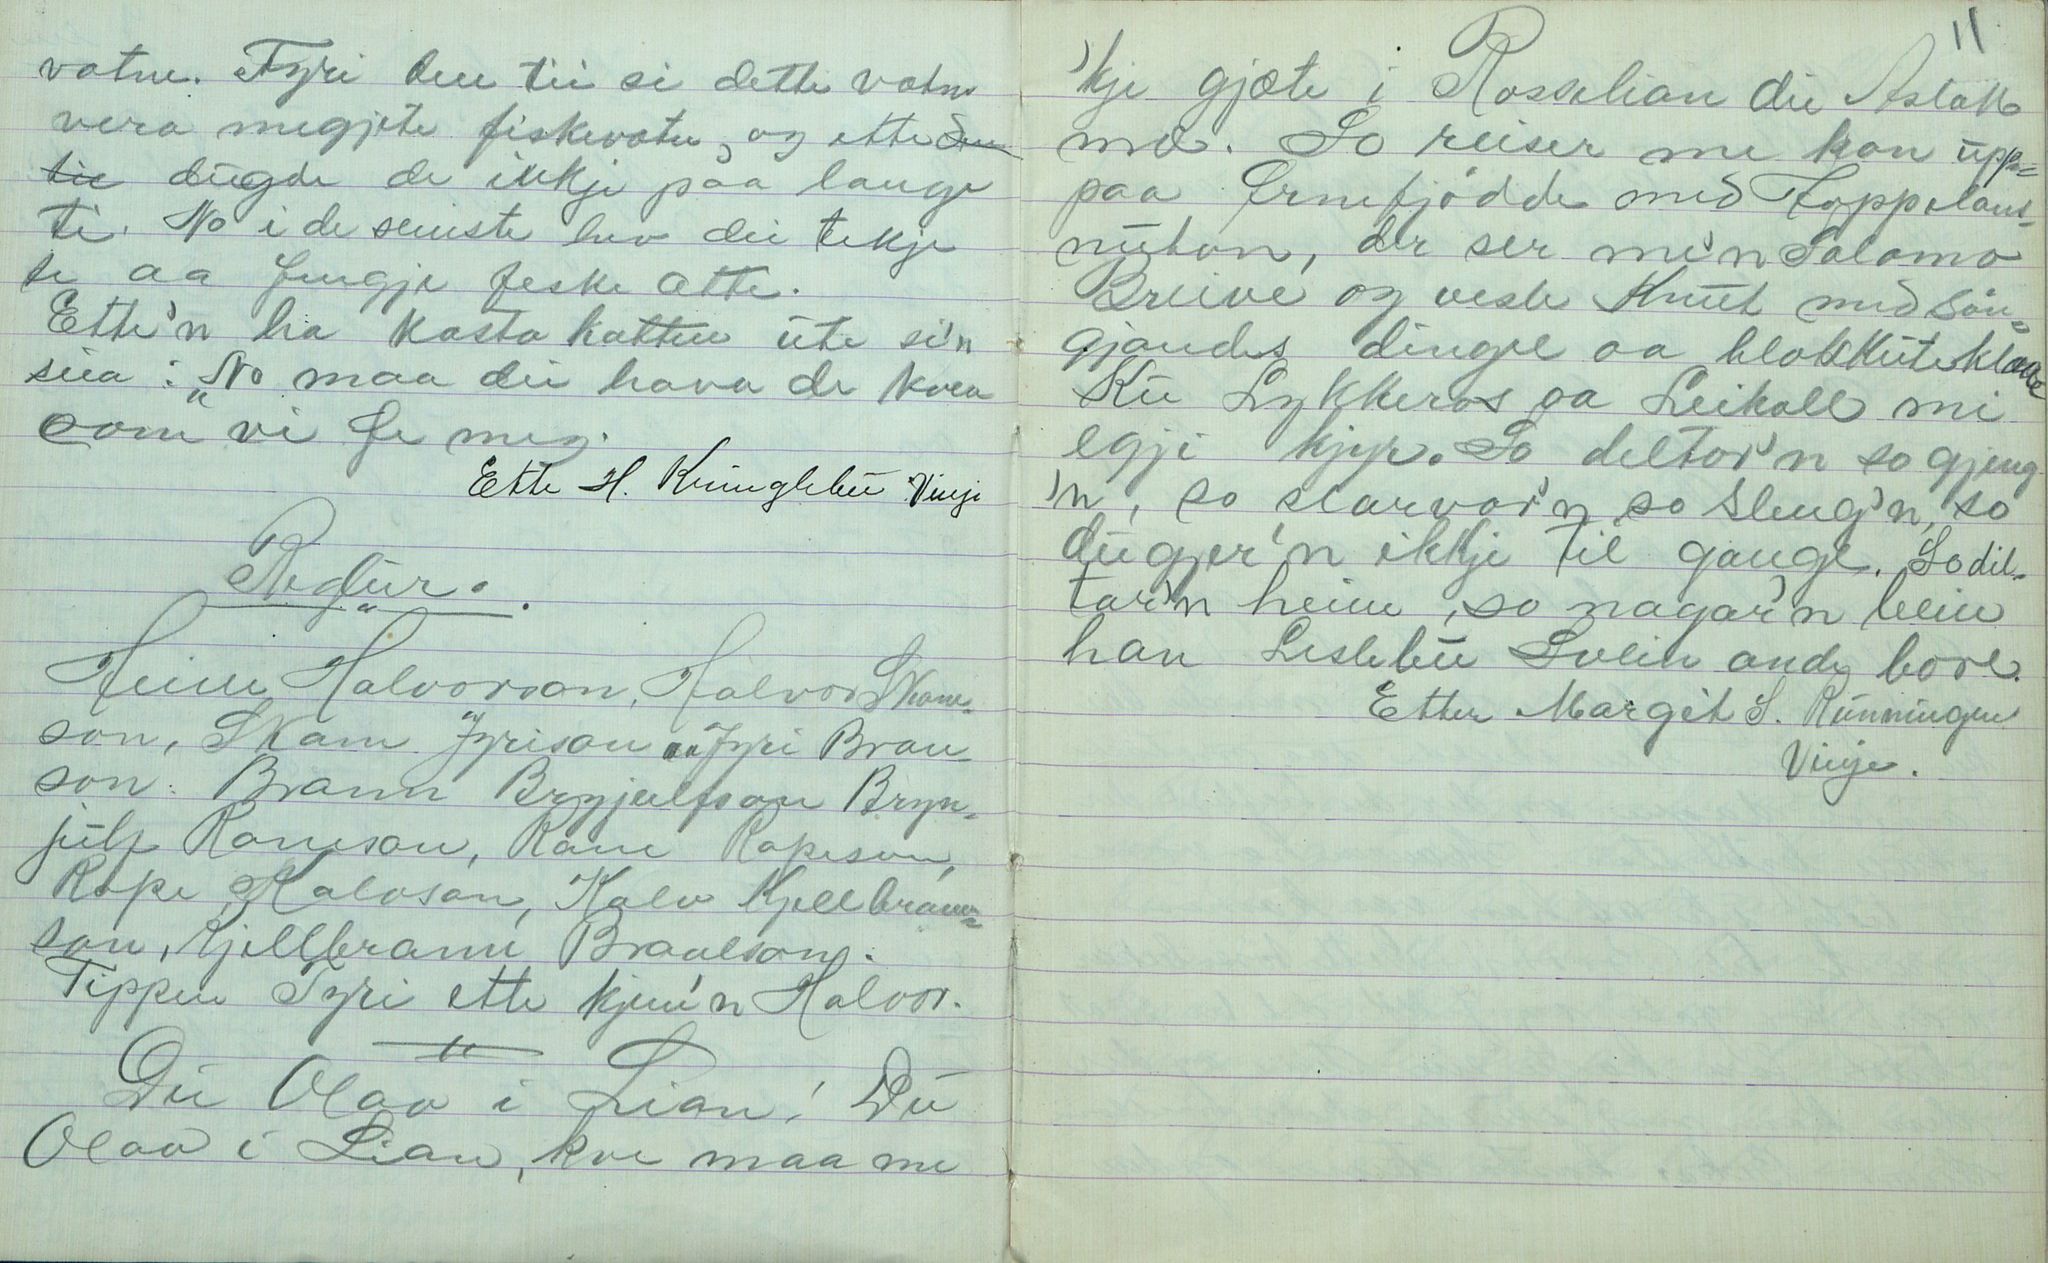 votne. Fyri den tii si dette votne
vera megjete fiskevotn, og ette den
tie dugde de ikkje paa lange
ti. No i de seinste hev dei tekje
te aa fengje feske atte.
Ette'n ha kasta katten ute si'n
siia: "No maa dii hava de kvea
som vi fe meg.
Ette H. Kringlebu Vinje
Reglur.
Heine Halvorson, Halvor Skam-
son, Skam Jyrison aa Jyri Bran-
son. Brann Brynjulfson Bryn-
julf Raneson, Rane Rapeson,
Rape Kalvson, Kalv Kjellbrann-
son, Kjellbrann Braulson.
Tippen Tyri ette kjem'n Halvor.
Du Olav i Lian! Du
Olav i Lian, kve maa me
11
'kje gjæte i Rosselian die Aslak
mæ. So reiser me kan upp-
paa Ernefjødde med Hoppelaus-
nuten, der ser me'n Salomo
Breive og vesle Knut med son-
gjandes dingel aa blokkuteklaave
Ku Lykkeros aa Leikall mi
egji kjyr. So deltar'n so gjeng
'n, so slarvar'n so sleng'n, so
dugjer'n ikkje til gange. So dil-
tar'n heim, so nagar'n bein
han Leslebu Svein ande bore.
Etter Margit S. Runningen
Vinje.